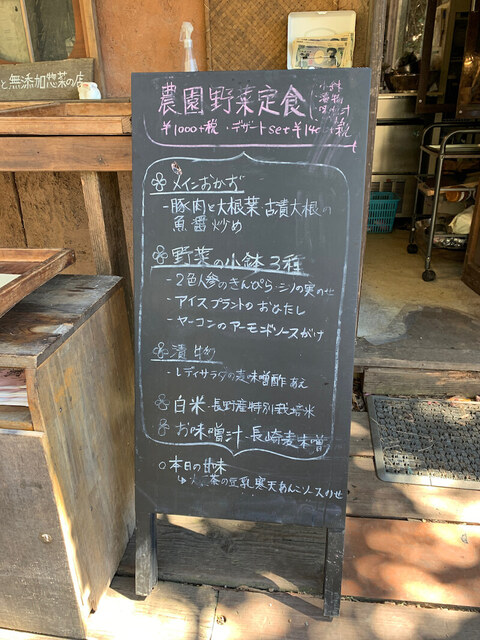 と無添加惣菜の店
農園野菜定食
小鉢
漬物
味噌汁
¥1000+税 デザートset ¥14
税
メインおかず
-豚肉と大根菜 古漬大根の
魚醤炒め
野菜の小鉢 3種
-2色人参のきんぴら シソの実のせ
-アイスプラントのおひたし
-ヤーコンのアーモンドソースがけ
漬物
-レディサラダの麦味噌酢あえ
白米-長野産特別栽培米
お味噌汁-長崎麦味噌
本日の甘味
茶の豆乳寒天あんこソースのせ